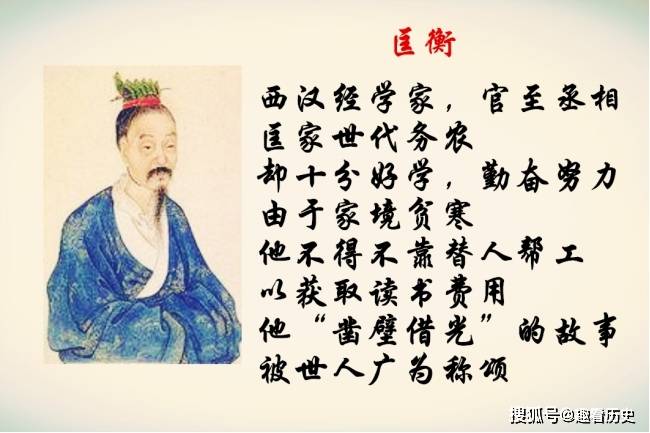 匡衡
西汉经学家，官至丞相
匡家世代务农
却十分好学，勤奋努力
由于家境贫寒
他不得不靠替人帮工
以获取读书费用
他“凿壁借光”的故事
被世人广为称颂
搜狐号@趣看历史